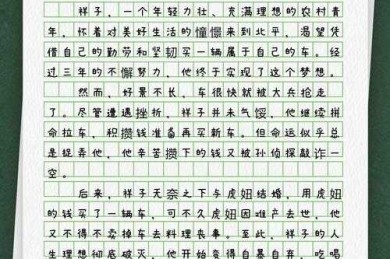 祥子，一个年轻力壮、充满理想的农村青
年，怀着对美好生活的憧憬来到北平，渴望凭
借自己的勤劳和坚韧买一辆属于自己的车。经
过三年的不懈努力，他终于实现了这个梦想。
然而，好景不长，车很快就被大兵抢走
了。尽管遭遇挫折，祥子并未气馁。他继续拼
命拉车，积攒钱准备再买新车。但命运似乎总
是捉弄他，他辛苦攒下的钱又被孙侦探敲诈一
空。
后来，祥子无奈之下与虎妞结婚，用虎妞
的钱买了一辆车，可不久虎妞因难产去世，他
又不得不卖掉车去料理丧事。至此，祥子的人
生理想彻底破灭，他开始变得自暴自弃，吃喝